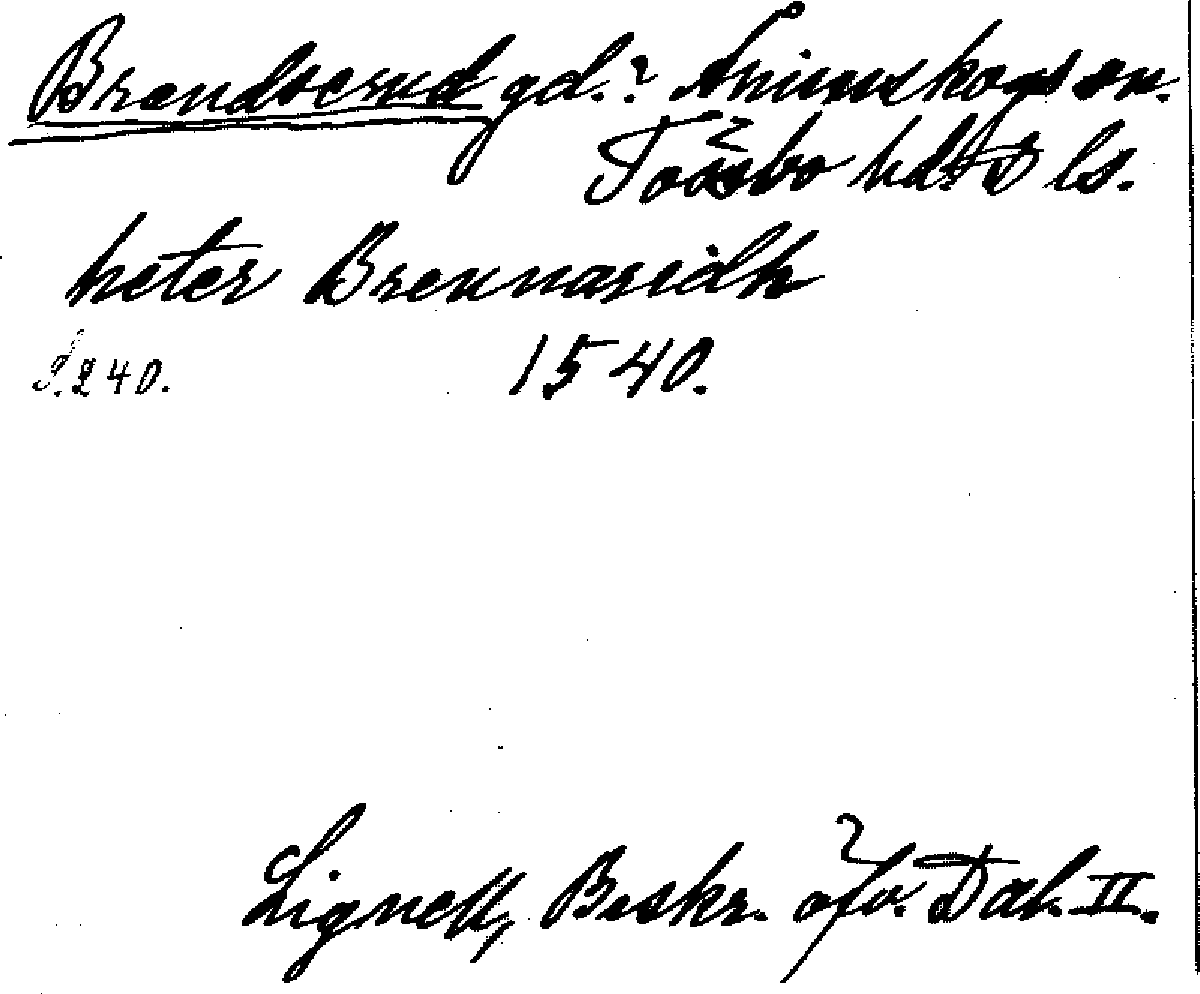 Brendserud gd.? Ånimskogs sn.
Tössbo hd. Ds ls.
heter Brennaridh
S. 240. 1540.
Lignell, Beskr. öfv. Dal. II.